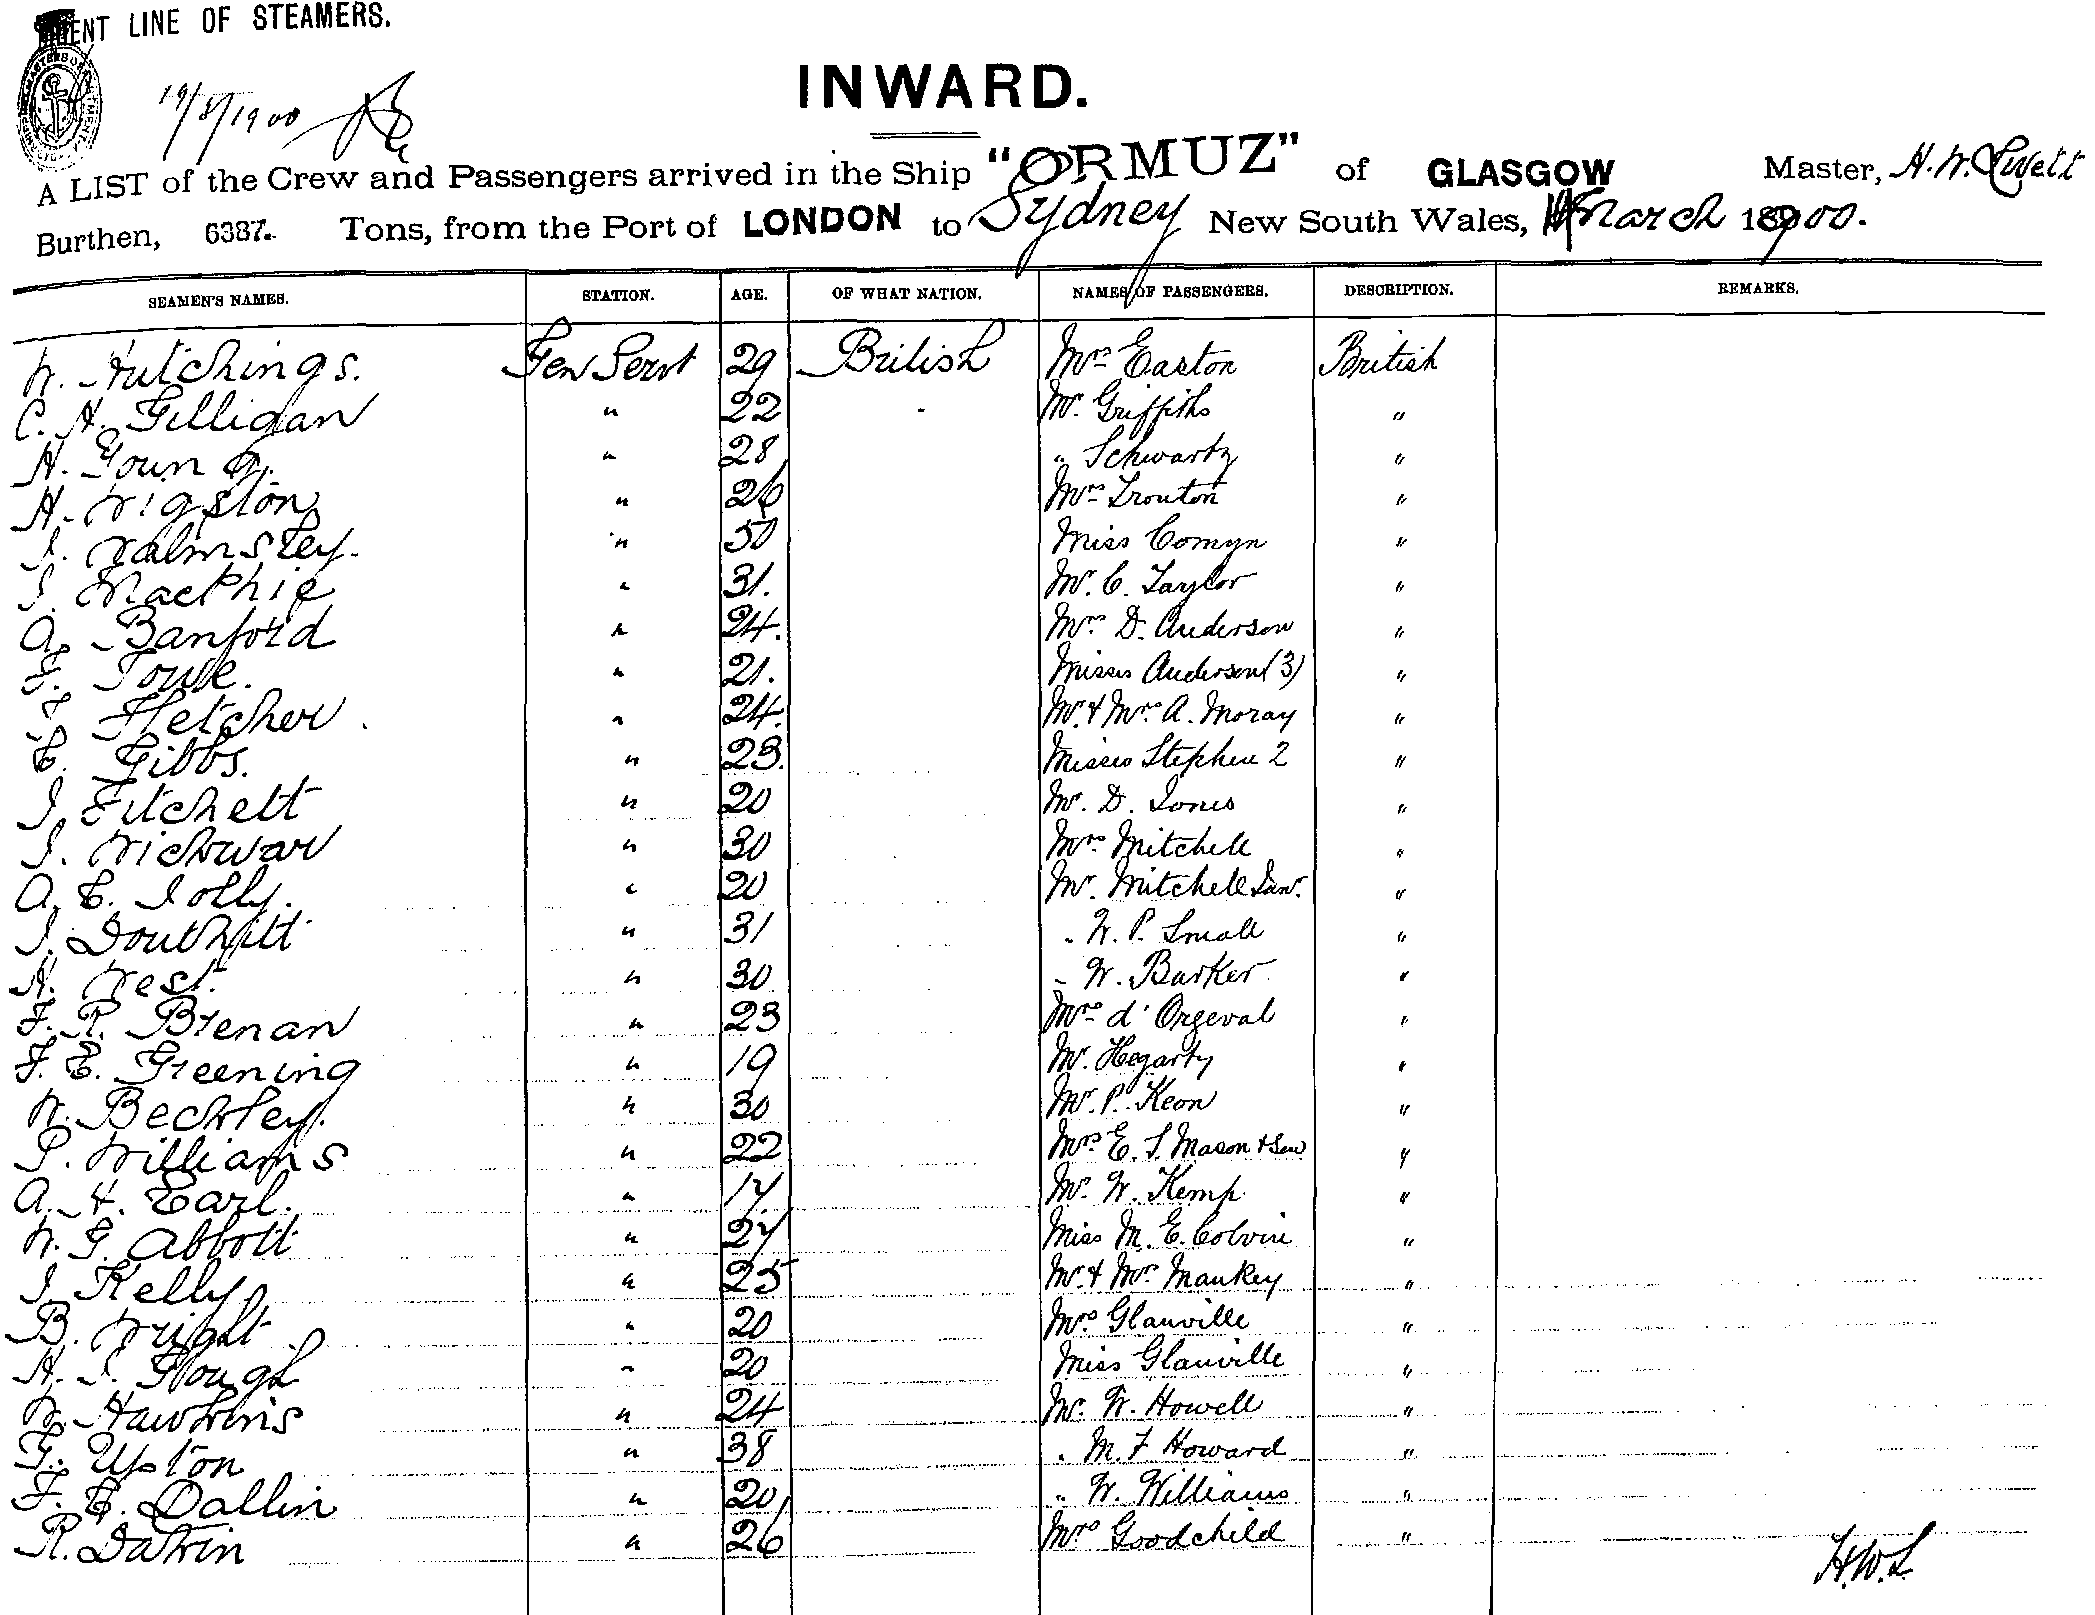 ENT LINE OF STEAMERS.
INWARD.
A LIST of the Crew and Passengers arrived in the Ship "ORMUZ" of GLASGOW Master, H. W.
Burthen, 6387. Tons, from the Port of LONDON to Sydney New South Wales, March 1900.
SEAMEN'S NAMES. STATION. AGE. OF WHAT NATION. NAMES OF PASSENGERS. DESCRIPTION. REMARKS.
W. Hutchings. Gen Servt 29 British Mrs Easton British
C. H. Gilligan " 22 Mr. Griffiths "
H. Young. " 28 " Schwartz "
H. Wigston " 26 Mrs Trouton "
J. Walmsley. " 30 Miss Comyn "
J. Macphie " 31. Mr. C. Taylor "
A. Banford " 24. Mrs D. Anderson "
F. " 21. Misses Anderson (3) "
Fletcher " 24. Mr. & Mrs A. Moray "
E. Gibbs. " 23. Misses Stephen 2 "
J. Fitchett " 20 Mr. D. Jones "
J. Wickwar " 30 Mrs Mitchell "
A. E. Jolly. " 20 Mr. Mitchell Junr. "
J. Douthitt " 31 " W. P. Small "
H. West. " 30 " W. Barker "
F. R. Brenan " 23 Mrs d'Orgeval "
F. E. Greening " 19 Mr. Hegarty "
W. Beckley. " 30 Mr. P. Keon "
P. Williams " 22 Mrs E. J. Mason & Son "
A. H. Earl. " 17 Mr. W. Kemp "
W. G. Abbott " 27 Miss M. E. Colvin "
J. Kelly " 25 Mr. & Mrs Mankey "
B. Wright " 20 Mrs Glanville "
H. J. Gough " 20 Miss Glanville "
W. Hawkins " 24 Mr. W. Howell "
G. Upton " 38 " M. F. Howard "
F. E. Dallin " 20 " W. Williams "
R. Dakin " 26 Mrs Goodchild "
H.W.L